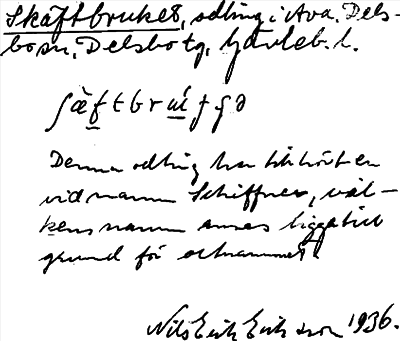 Skäftbruket, odling i Ava, Dels-
bo sn, Delsbo tg, Gävleb. l.
ʃæ̀f̱tbrụ́ʃ ʂə
Denna odling har tillhört en
vid namn Schiffner, vil-
kens namn anses ligga till
grund för ortnamnet.
Nils Erik Eriksson 1936.